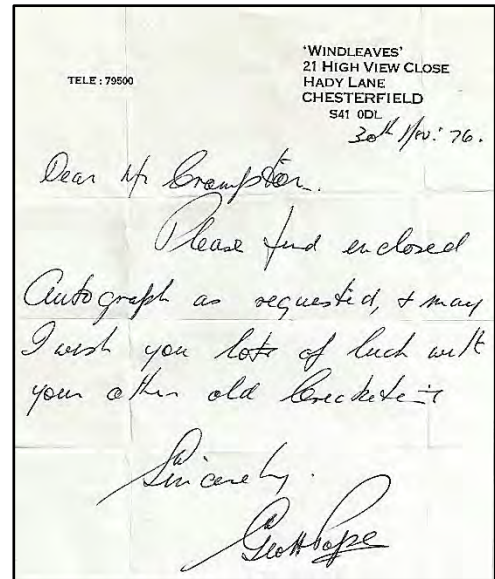 'WINDLEAVES'
21 HIGH VIEW CLOSE
HADY LANE
CHESTERFIELD
S41 0DL
TELE : 79500
30th Nov: 76.
Dear Mr Crompton.
Please find enclosed
Autograph as requested, & may
I wish you lots of luck with
your other old
Sincerely.
Geoff Pope